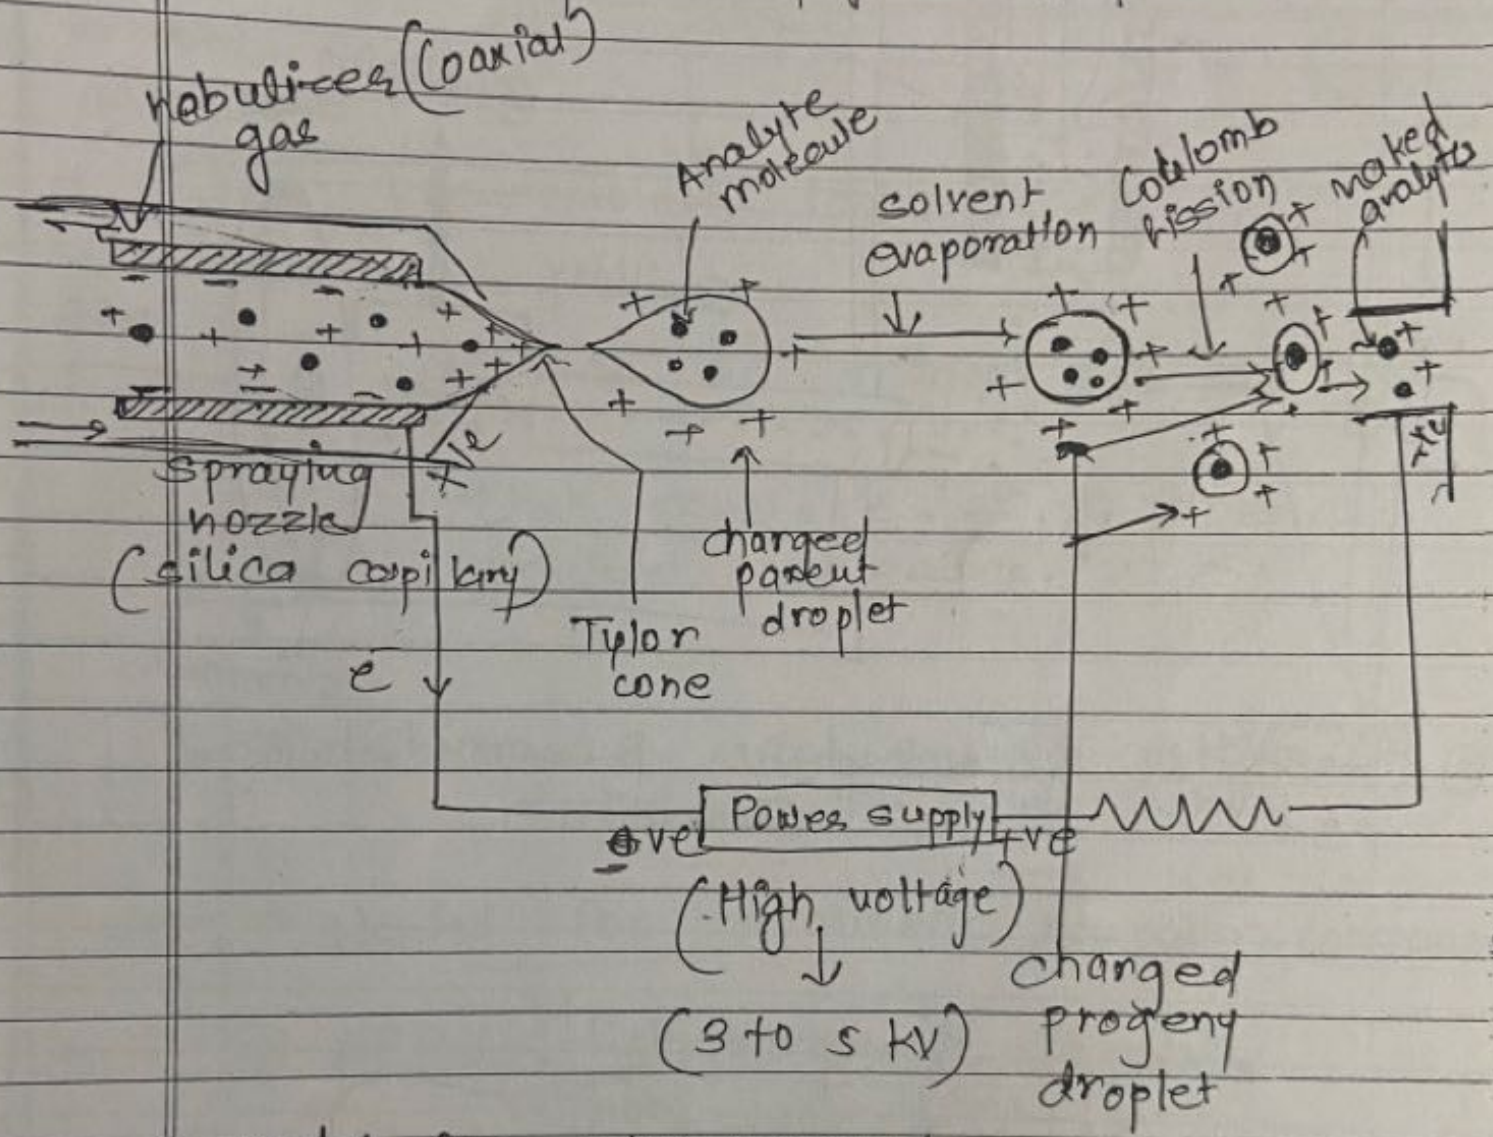 nebulizer (Coaxial)
gas
Analyte
molecule
solvent
evaporation
Coulomb
fission
naked
analyte
Spraying
nozzle
(silica capillary)
+ve
Tylor
cone
charged
parent
droplet
e-
Power supply
-ve
+ve
(High voltage)
(3 to 5 kV)
charged
progeny
droplet